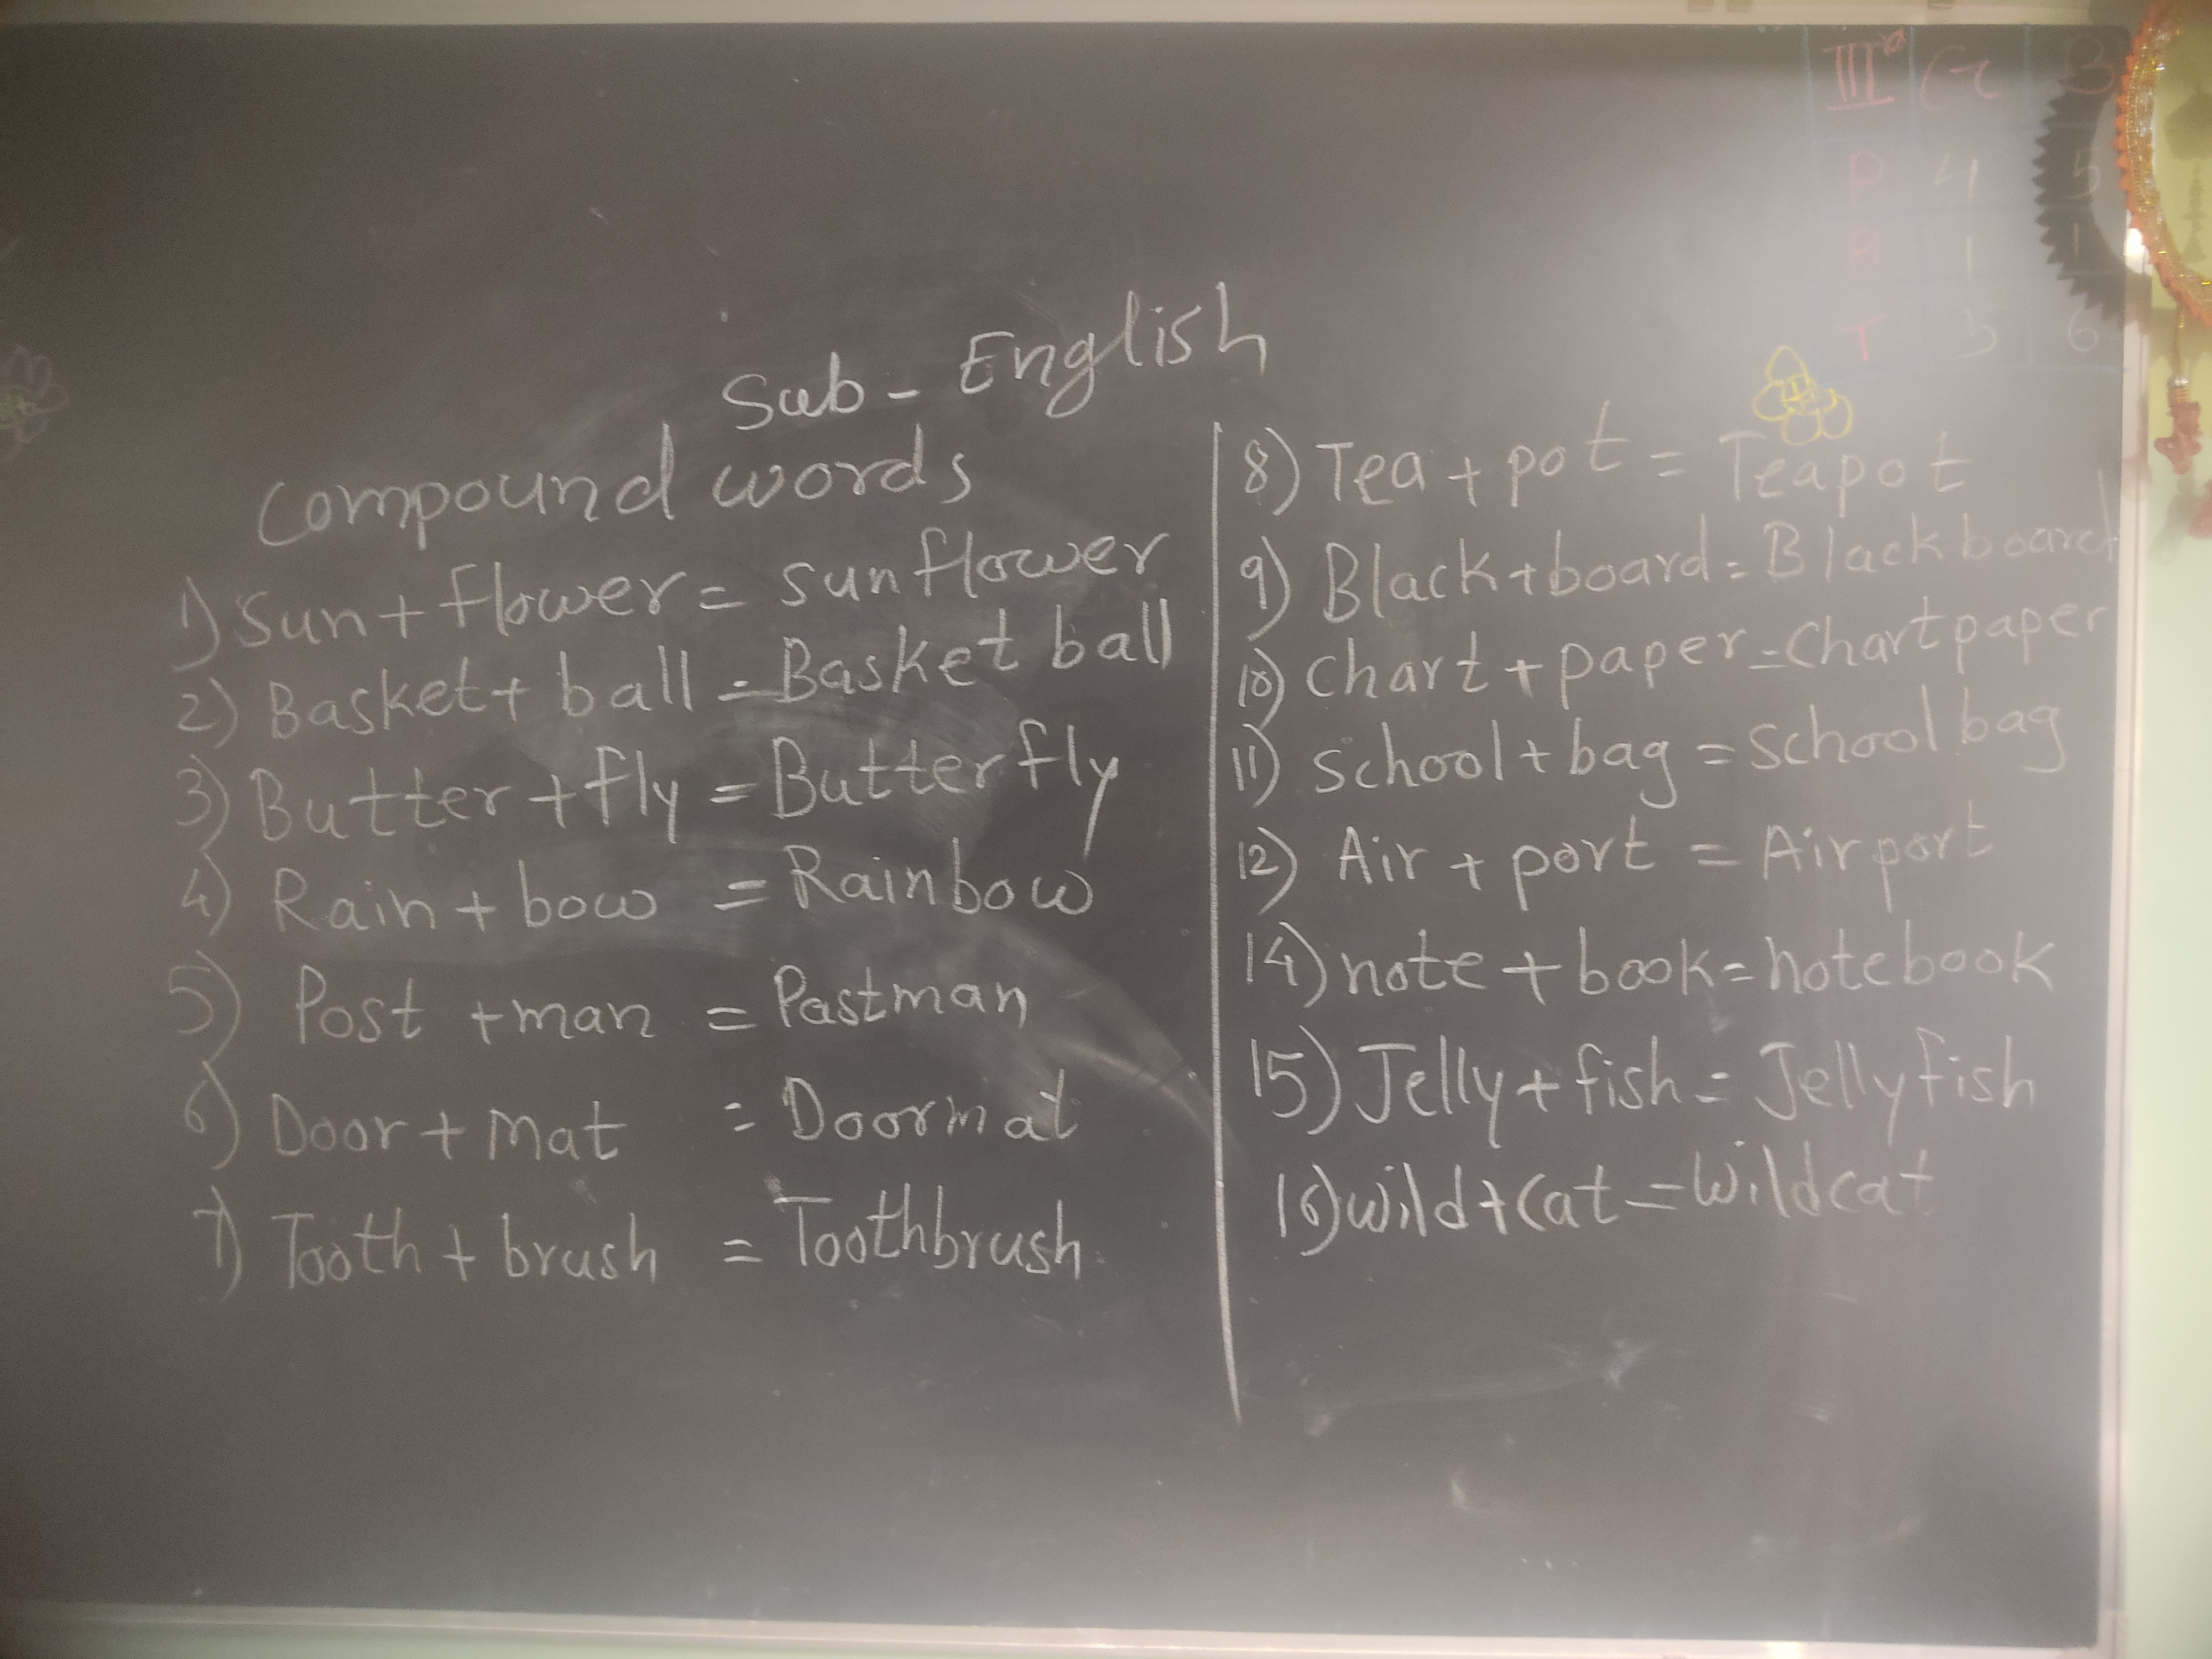 III G B
P 4 5
A 1 1
T 5 6
Sub - English
Compound words
1) Sun + flower = sunflower
2) Basket + ball = Basket ball
3) Butter + fly = Butterfly
4) Rain + bow = Rainbow
5) Post + man = Pastman
6) Door + mat = Doormat
7) Tooth + brush = Toothbrush
8) Tea + pot = Teapot
9) Black + board = Blackboard
10) Chart + paper = Chartpaper
11) School + bag = School bag
12) Air + port = Airport
14) note + book = notebook
15) Jelly + fish = Jellyfish
16) wild + cat = wildcat